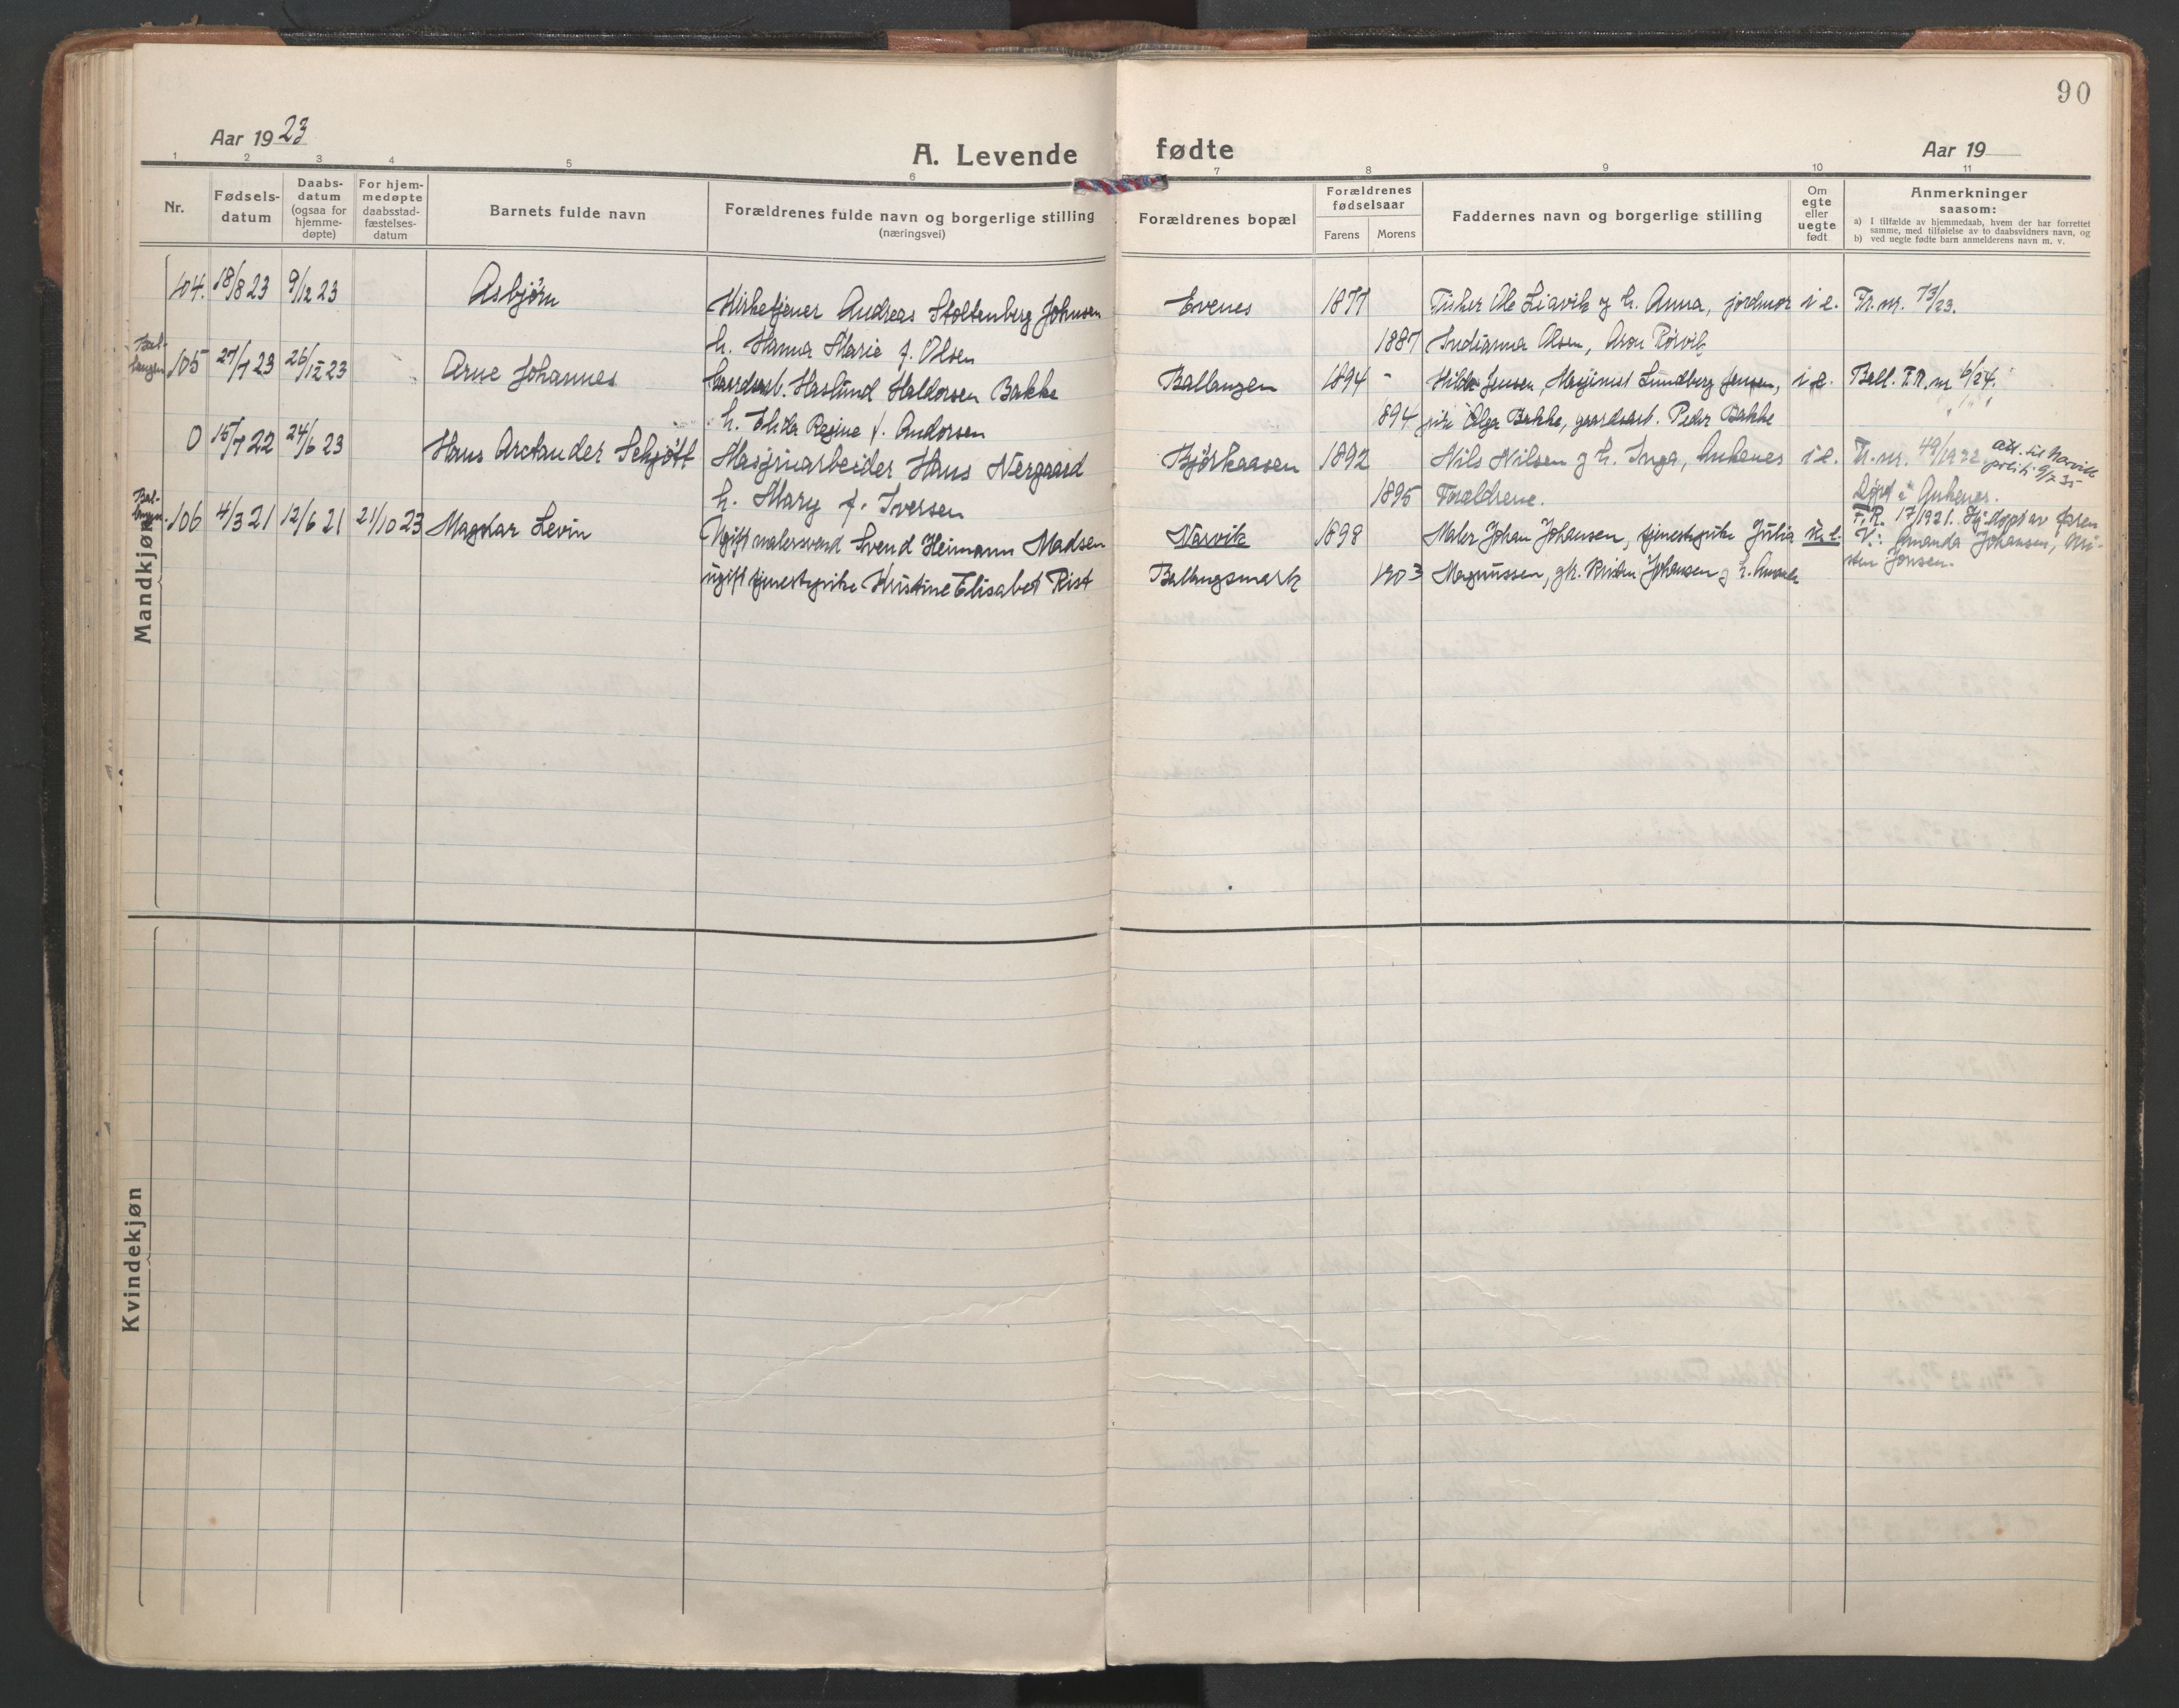 90
Aar 1923
A. Levende fødte
Aar 19
1 2 3 4 5 6 7 8 9 10 11
Nr.
Fødsels-
datum
Daabs-
datum
(ogsaa for
hjemme-
døpte)
For hjem-
medøpte
daabsstad-
fæstelses-
datum
Barnets fulde navn
Forældrenes fulde navn og borgerlige stilling
(næringsvei)
Forældrenes bopæl
Forældrenes
fødselsaar
Farens Morens
Faddernes navn og borgerlige stilling
Om
egte
eller
uegte
født
Anmerkninger
saasom:
a) I tilfælde av hjemmedaab, hvem der har forrettet
samme, med tilføielse av to daabsvidners navn, og
b) ved uegte fødte barn anmelderens navn m. v.
Mandkjøn
104. 18/8 23 9/12 23 Asbjørn Kirketjener Andreas Stoltenberg Johnsen Evenes 1877 Fisker Ole Liavik og h. Anna, jordmor i e. Fr. nr. 73/23.
h. Hanna Marie f. Olsen 1887 Indianna Olsen, Aron Rørvik
Bal-
langen
105 27/7 23 26/12 23 Arne Johannes Gaardsarb. Haslund Haldorsen Bakke Ballangen 1894 - Hilda Jensen, Maskinist Lundberg Jensen, i e. Ball. F.R. nr 6/24.
h. Elida Regine f. Andorsen 894 pike Olga Bakke, gaardsarb. Peder Bakke
0 15/7 22 24/6 23 Hans Arctander Schjøtt Maskinarbeider Hans Nergaard Bjørkaasen 1892 Nils Nilsen og h. Inga, Ankenes i e. Fr. nr. 49/1922 att. til Narvik
politi 9/7 35
h. Mary f. Iversen 1895 Forældrene. Døpt i Ankenes.
Bal-
langen
106 4/3 21 12/6 21 21/10 23 Magnar Levin Ugift malersvend Svend Heimann Madsen Narvik 1898 Maler Johan Johansen, tjenestepike Julia u. e. F.R. 17/1921. Hj.døpt av faren
ugift tjenestepike Kristine Elisabet Rist Ballangsmark 1903 Magnussen, gk. Johansen og h. V.: Amanda Johansen,
Jonsen.
Kvindekjøn